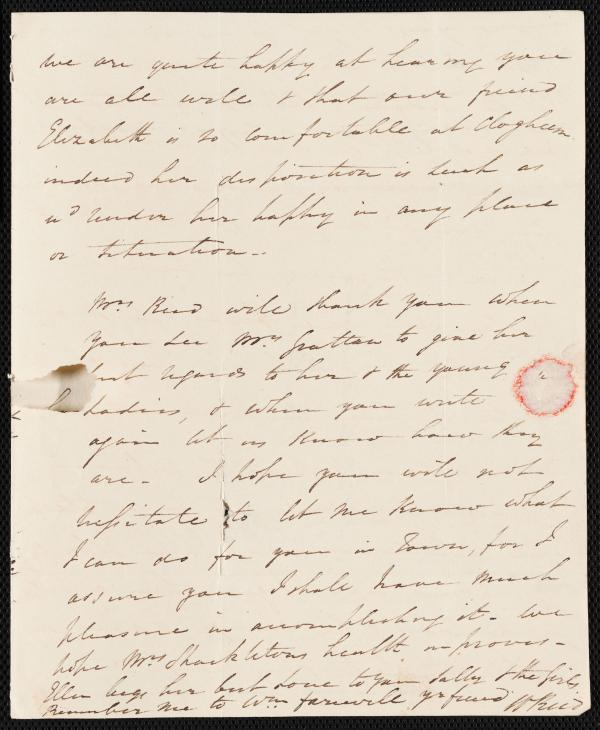 we are quite happy at hearing you
are all well & that our friend
Elizabeth is so comfortable at Clogheen
indeed her disposition is such as
wd render her happy in any place
or situation..
Mrs Reid will thank you when
you see Mrs Grattan to give her
best regards to her & the young
Ladies, & when you write
again let us know how they
are - I hope you will not
hesitate to let me know what
I can do for you in Town, for I
assure you I shall have much
pleasure in accomplishing it - we
hope Mrs Shackletons health improves -
Ellen begs her best Love to you Sally & the Girls
Remember me to Wm farewell yr friend W Reid